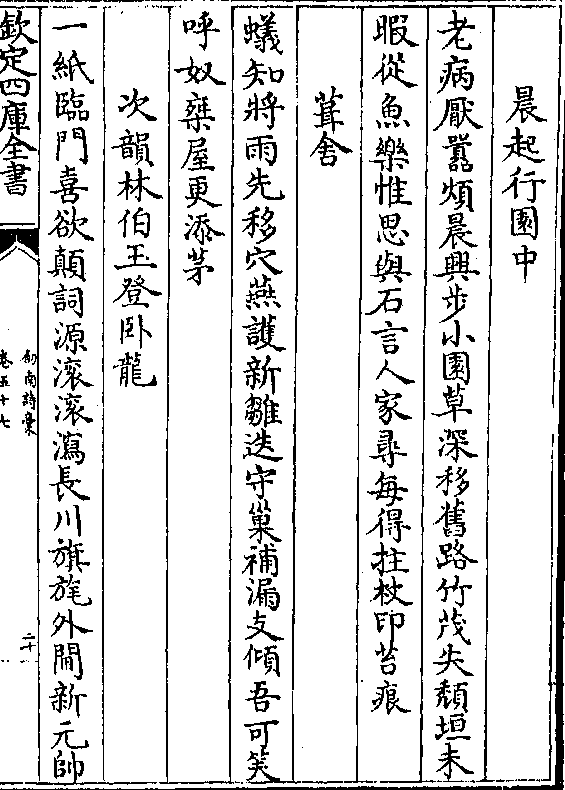 晨起行園中
老病厭囂煩晨興步小園草深移舊路竹茂失頽垣未
暇從魚樂惟思與石言人家尋每得拄杖印苔痕
葺舍
蟻知將雨先移穴燕護新雛迭守巢補漏支傾吾可笑
呼奴椉屋更添茅
次韻林伯玉登卧龍
一紙臨門喜欲顛詞源滚滚瀉長川旗旄外閫新元帥
欽定四庫全書
劍南詩稾
卷五十七
二十